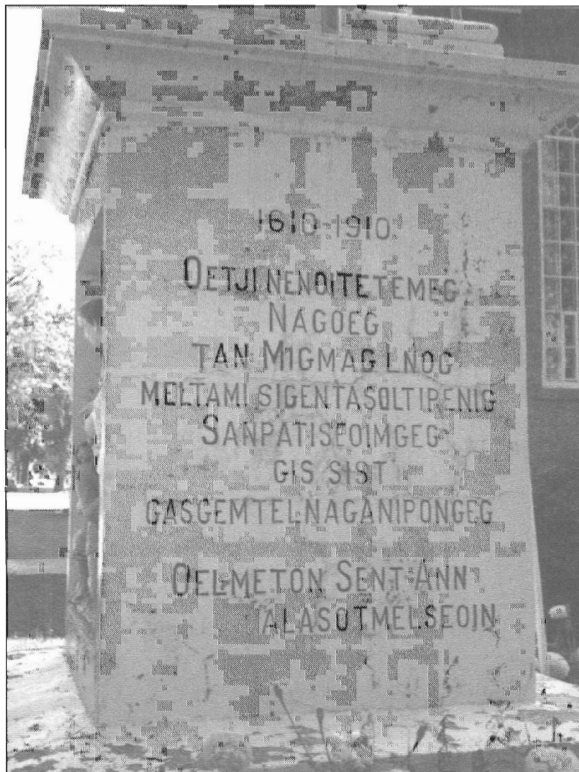 1610-1910
OETJI NENOITETEMEG
NAGOEG
TAN MIGMAG LNOG
MELTAMI SIGENTASOLTIPENIG
SANPATISEOIMGEG
GIS SIST
GASGEMTELNAGANIPONGEG
OELMETON SENT-ANN
ALASOTMELSEOIN